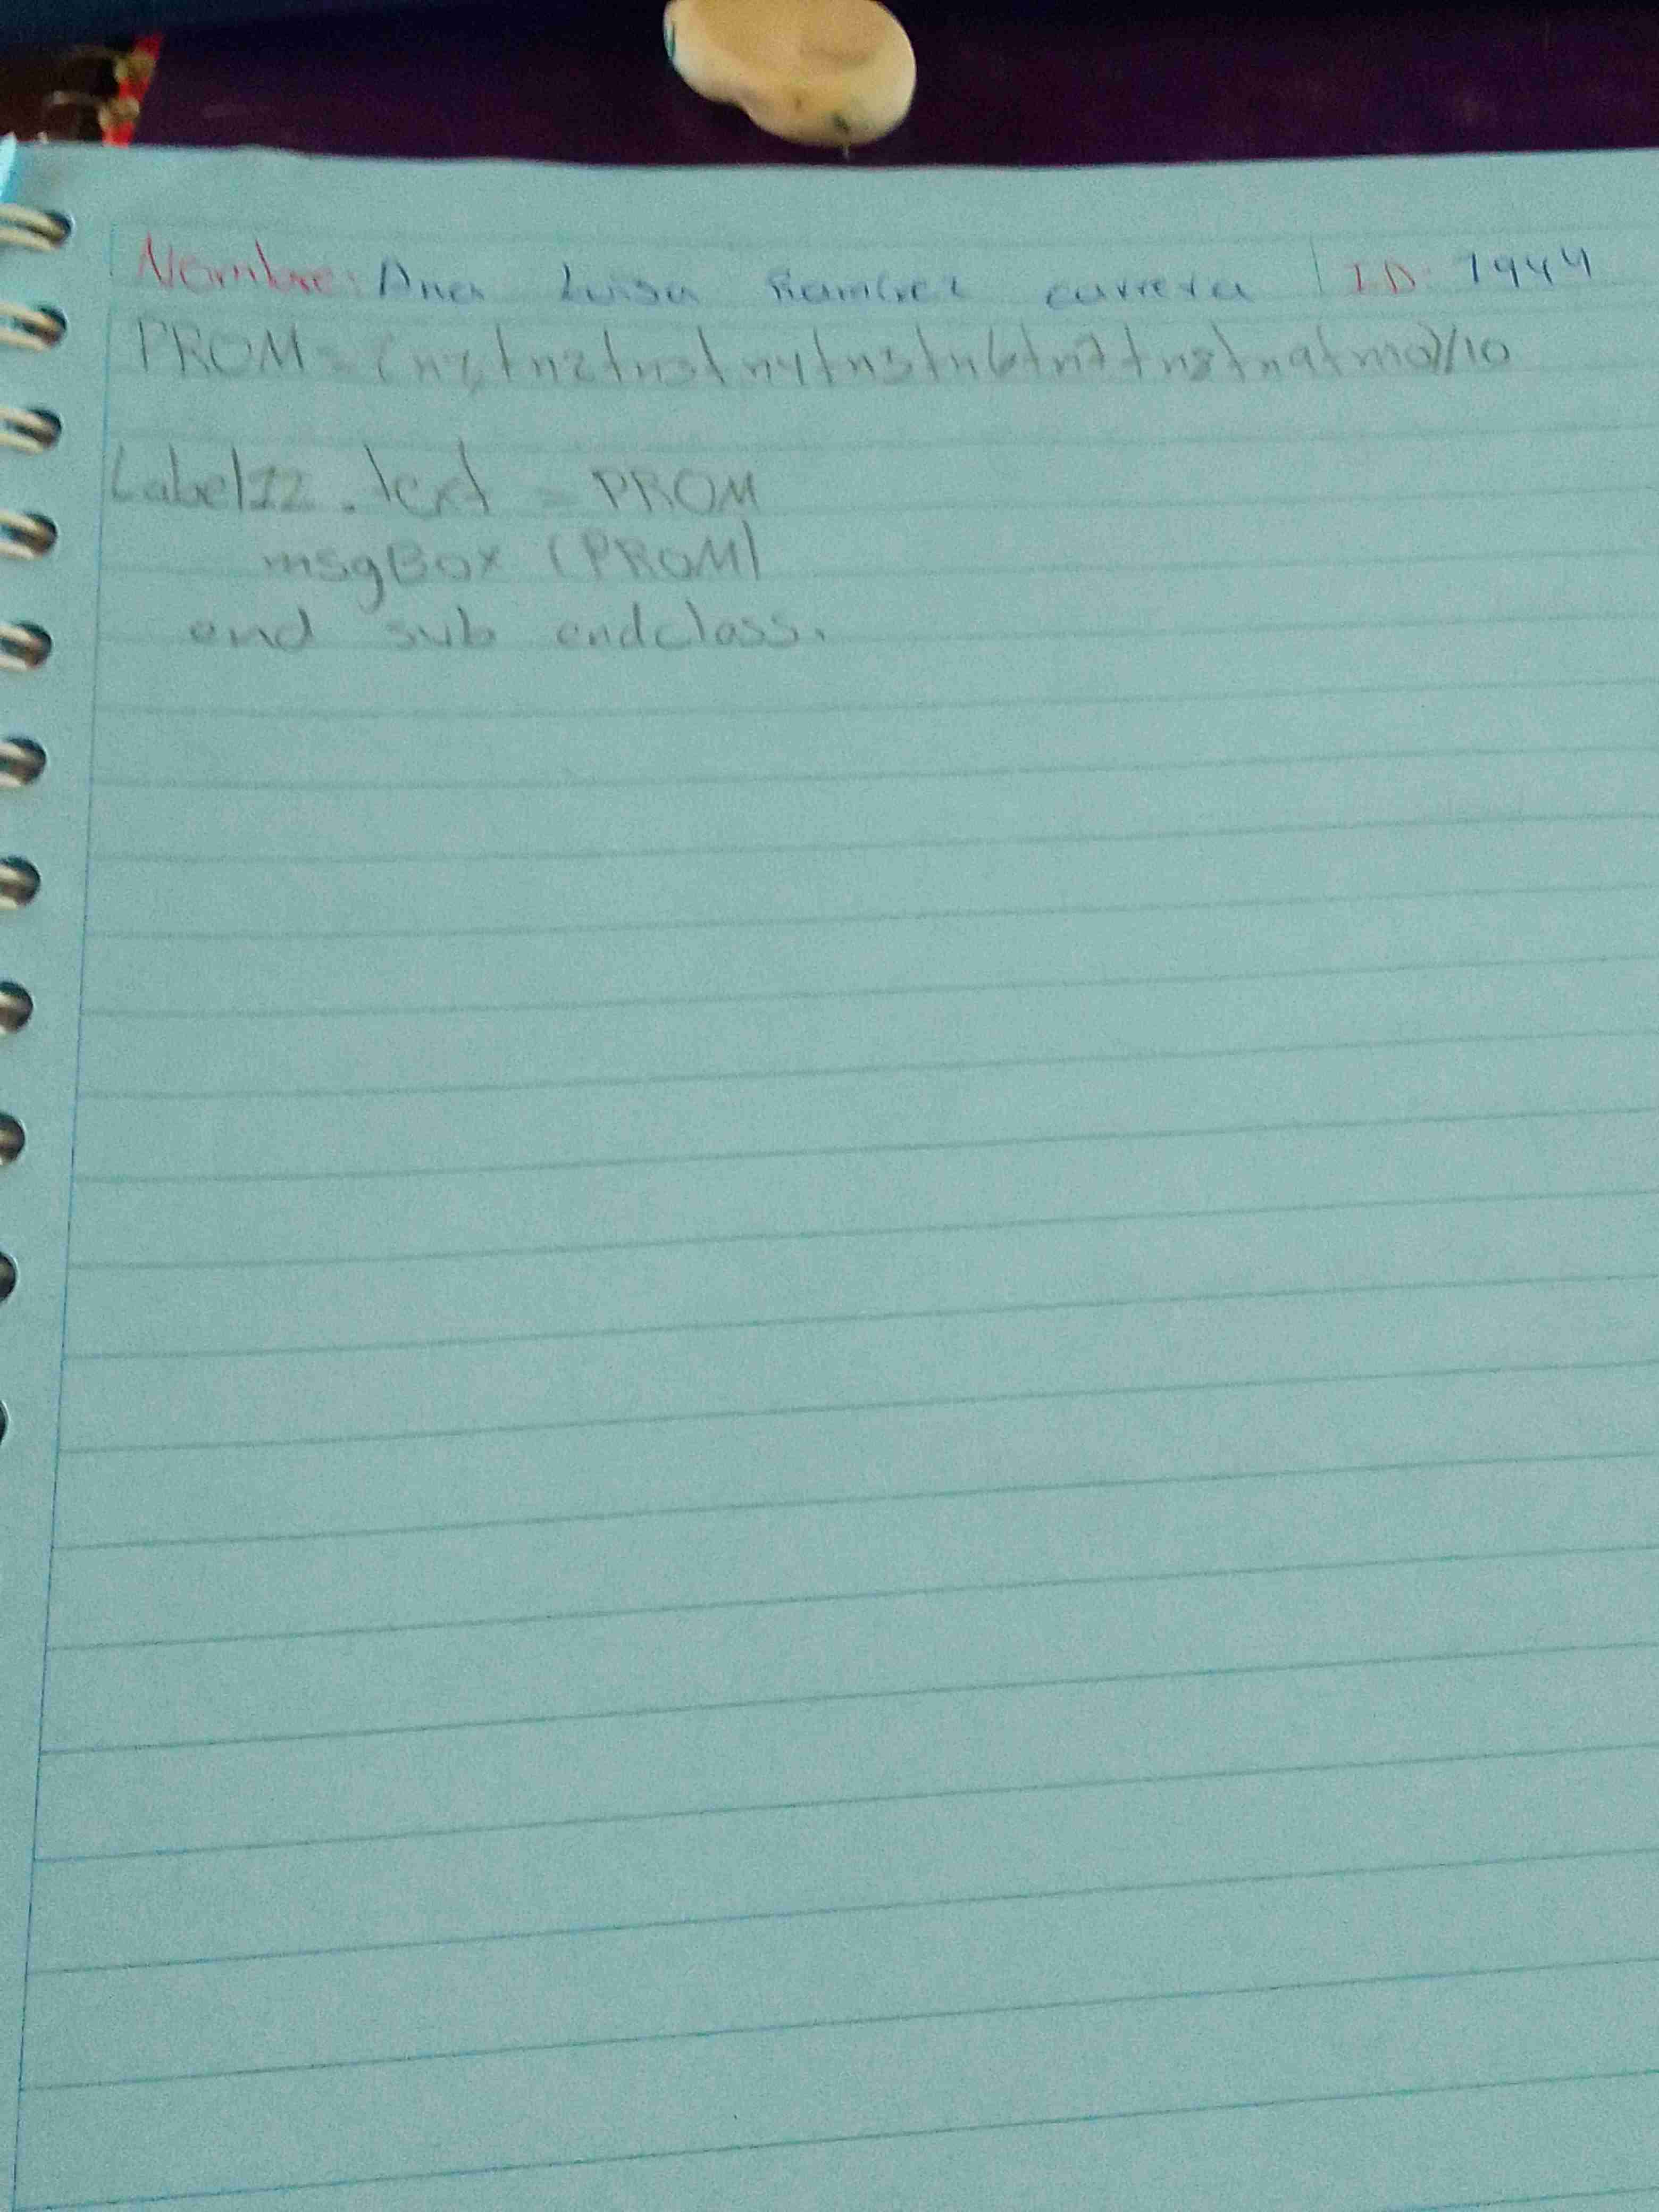 Nombre: Ana Luisa Ramirez carrera | I.D: 1944
PROM = (n1+n2+n3+n4+n5+n6+n7+n8+n9+n10)/10
Label12.text = PROM
msgBox (PROM)
end sub endclass.